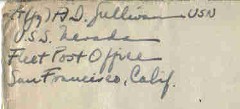 R.D. Sullivan USN
U.S.S. Nevada
Fleet Post Office
San Francisco, Calif.